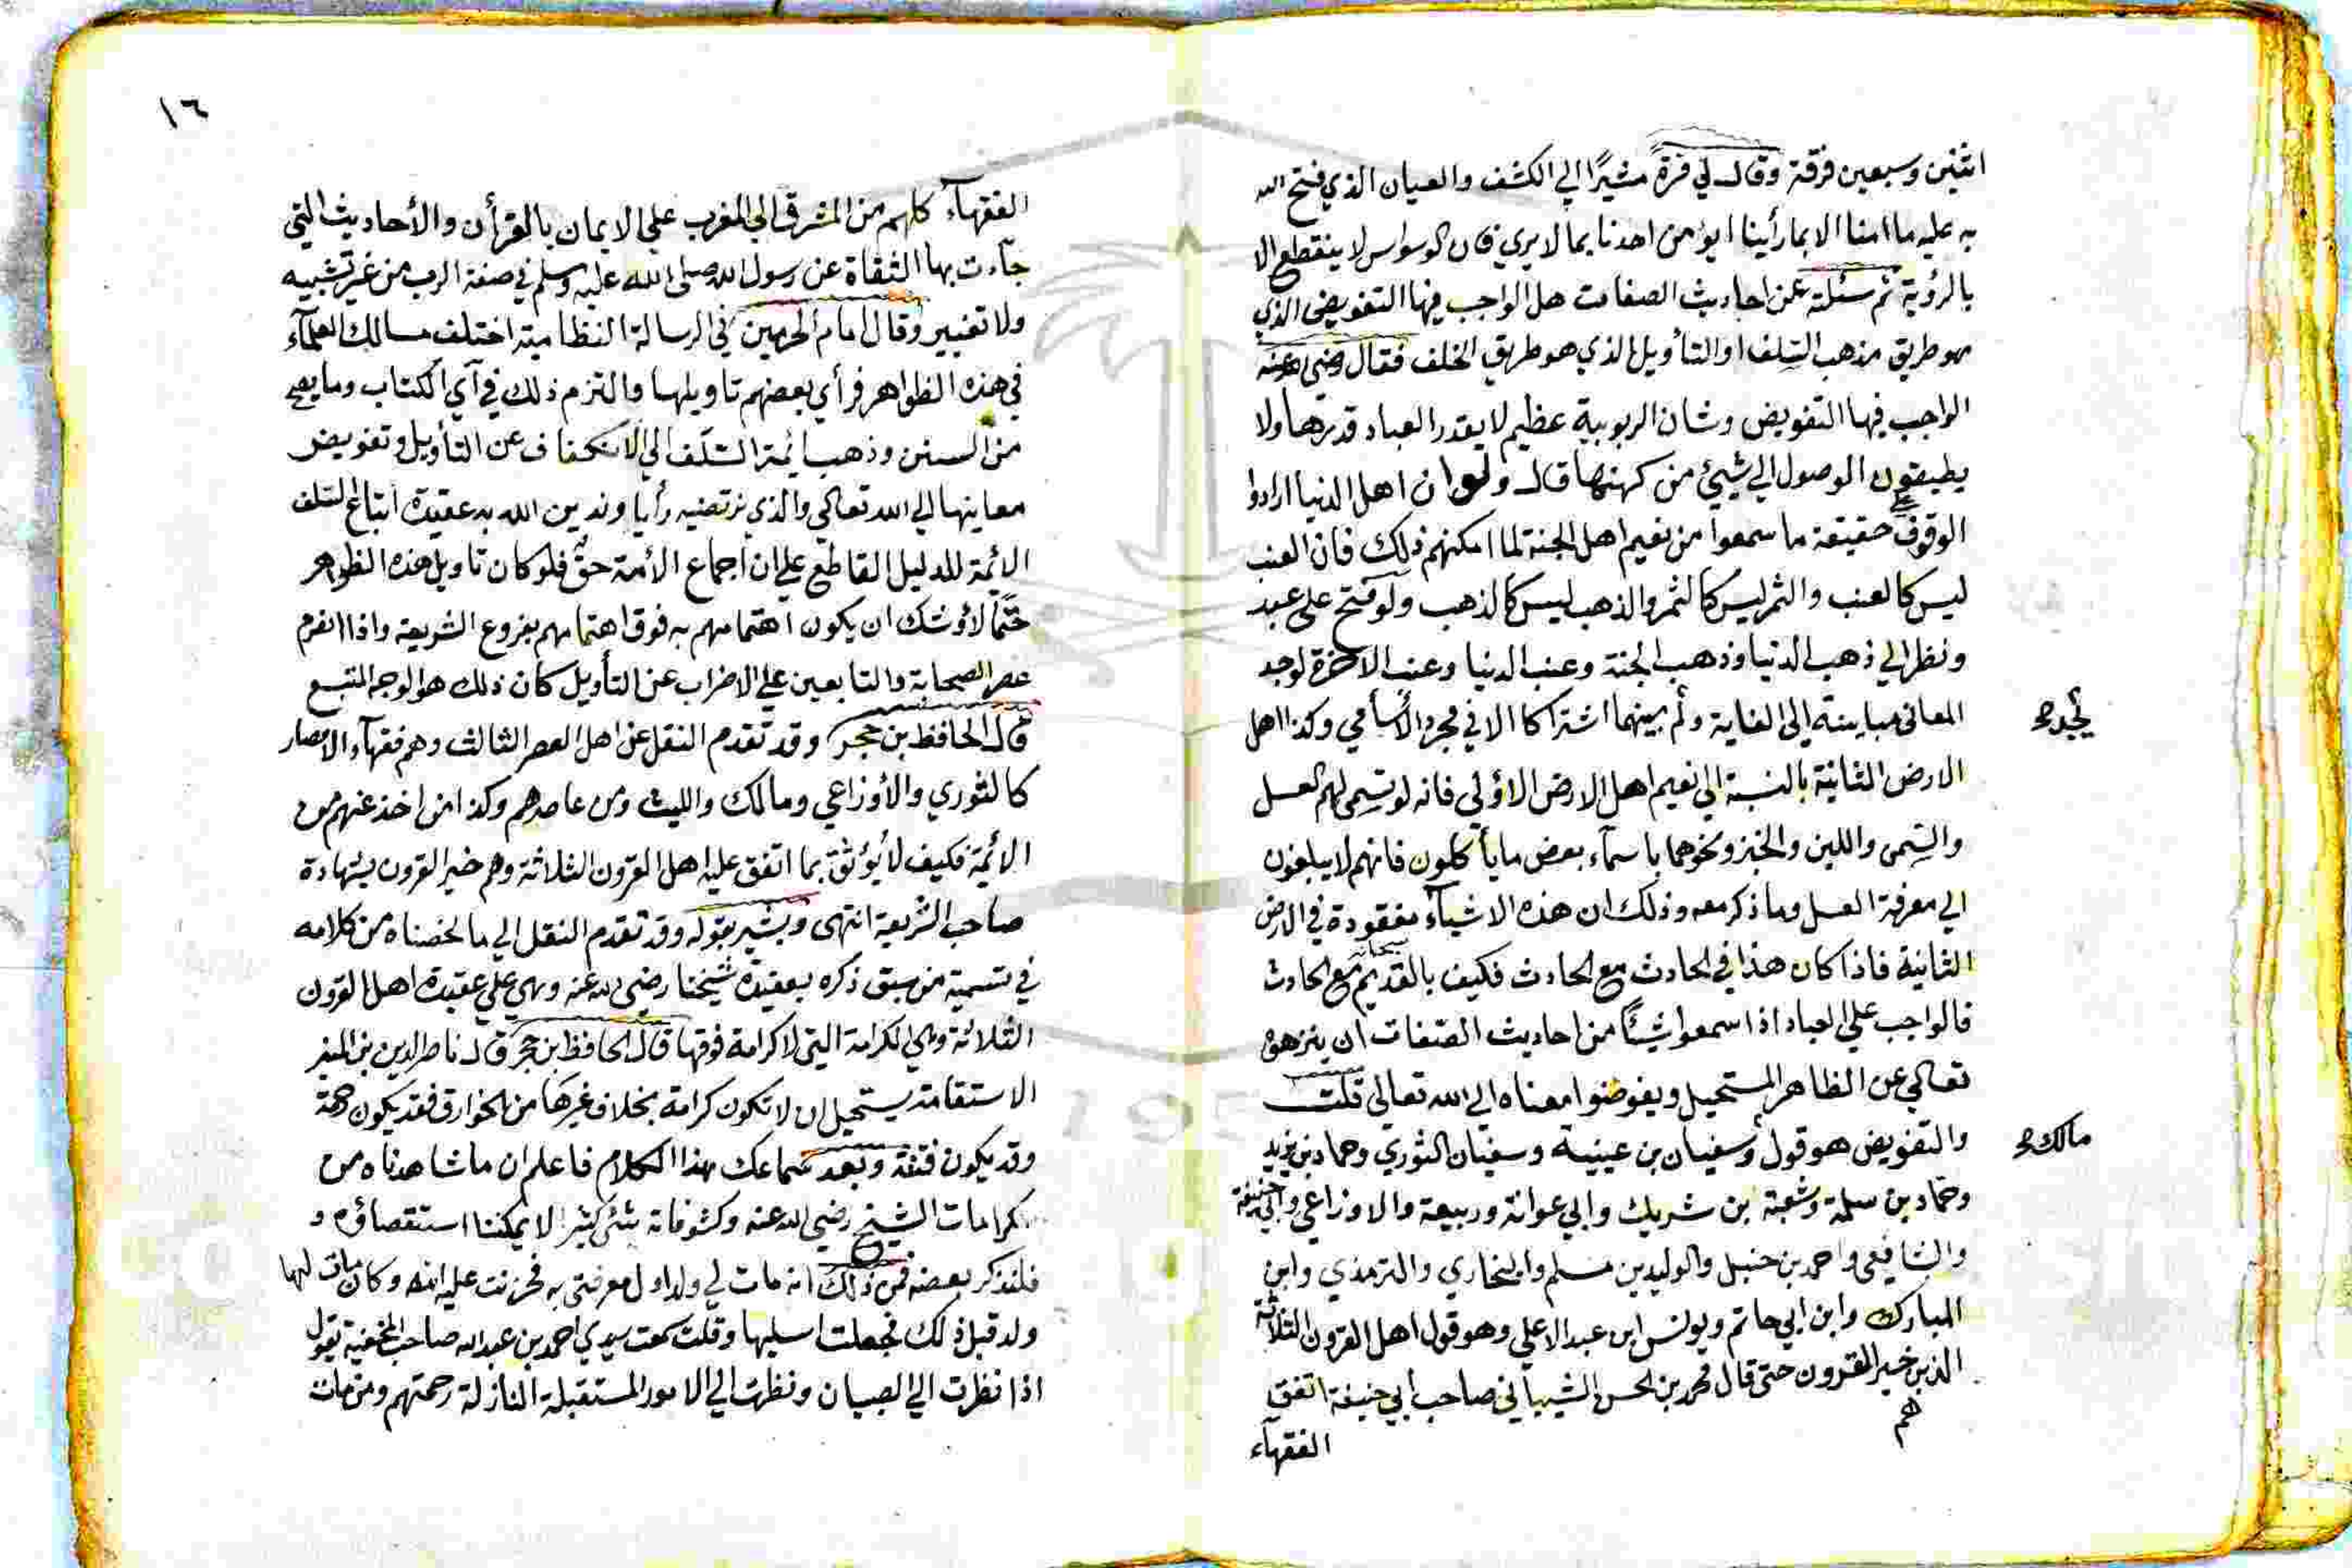 اثنين وسبعين فرقة وقال لي مرة مشيرًا الي الكشف والعيان الذي فتح الله
به عليه ما امنا الا بما رأينا ايؤمن احدنا بما لا يري فان الوسواس لا ينقطع الا
بالرؤية ثم سئلته عن احاديث الصفات هل الواجب فيها التفويض الذي
هو طريق مذهب السلف او التأويل الذي هو طريق الخلف فقال رضي عنه
الواجب فيها التفويض وشان الربوبية عظيم لا يقدر العباد قدرها ولا
يطيقون الوصول الي شيئ من كهنها قال ولو ان اهل الدنيا ارادوا
الوقوف علي حقيقة ما سمعوا من نعيم اهل الجنة لما امكنهم ذلك فان العنب
ليس كالعنب والثمر ليس كالثمر والذهب ليس كالذهب ولو فتح علي عبد
ونظر الي ذهب الدنيا وذهب الجنة وعنب الدنيا وعنب الاخرة لوجد
المعاني مباينة الي الغاية ولم بينهما اشتراكا الا في مجرد الأسامي وكذا اهل
يجد
الارض الثانية بالنسبة الي نعيم اهل الارض الاؤلي فانه لو سمي لهم العسل
والسمن واللبن والخبز ونحوهما باسمآء بعض ما يأكلون فانهم لا يبلغون
الي معرفة العسل وما ذكر معه وذلك ان هذه الاشيآء مفقودة في الارض
الثانية فاذا كان هذا في الحادث مع الحادث فكيف بالقديم سبحانه مع الحادث
فالواجب علي العباد اذا سمعوا شيئًا من احاديث الصفات ان ينزهوه
تعالي عن الظاهر المستحيل ويفوضوا معناه الي الله تعالي قلت
والتفويض هو قول وسفيان بن عيينة وسفيان الثوري وحماد بن يزيد
مالك
وحماد بن سلمة وشعبة بن شريك وابي عوانة وربيعة والاوزاعي وابي حنيفة
والشافعي واحمد بن حنبل والوليد بن مسلم والبخاري والترمذي وابن
المبارك وابن ابي حاتم ويونس ابن عبد الاعلي وهو قول اهل القرون الثلاثة
الذين خير القرون حتي قال محمد بن الحسن الشيباني صاحب ابي حنيفة اتفق
هم
الفقهآء
١٦
الفقهآء كلهم من المشرق الي المغرب علي الايمان بالقرأن والأحاديث التي
جآءت بها الثقاة عن رسول الله صلي الله عليه وسلم في صفة الرب من غير تشبيه
ولا تفسير وقال امام الحرمين في الرسالة النظامية اختلف مسالك العلمآء
في هذه الظواهر فرأي بعضهم تاويلها والتزم ذلك في آي الكتاب وما يصح
من السنن وذهب ائمة السلف الي الانكفاف عن التأويل وتفويض
معاينها الي الله تعالي والذي نرتضيه رأيا وندين الله به عقيدة اتباع السلف
الائمة للدليل القاطع علي ان اجماع الأمة حق فلو كان تاويل هذه الظواهر
حتمًا لاؤشك ان يكون اهتمامهم به فوق اهتمامهم بفروع الشريعة واذا انصرم
عصر الصحابة والتابعين علي الاضراب عن التأويل كان ذلك هو الوجه المتبع
قال الحافظ بن حجر وقد تقدم النقل عن اهل العصر الثالث وهم فقهآء الامصار
كالثوري والأوزاعي ومالك والليث ومن عاصرهم وكذا من اخذ عنهم من
الائمة فكيف لا يؤثق بما اتفق عليه اهل القرون الثلاثة وهم خير القرون بشهادة
صاحب الشريعة انتهي ويشير بقوله وقد تقدم النقل الي ما لخصناه من كلامه
في تسمية من سبق ذكره بعقيدة شيخنا رضي الله عنه وهي علي عقيدة اهل القرون
الثلاثة وهي الكرامة التي لا كرامة فوقها قال الحافظ بن حجر قال ناصر الدين بن المنير
الاستقامة يستحيل ان لا تكون كرامة بخلاف غيرها من الخوارق فقد يكون رحمة
وقد يكون فتنة وبعد سماعك بهذا الكلام فاعلم ان ما شاهدناه من
كرامات الشيخ رضي الله عنه وكشوفاته شئ كثير لا يمكننا استقصاؤه و
فلنذكر بعضه فمن ذلك انه مات لي ولد اول معرفتي به فحزنت عليه امه وكان مات لها
ولد قبل ذلك فجعلت اسليها وقلت سمعت سيدي احمد بن عبد الله صاحب المخفية يقول
اذا نظرت الي الصبيان ونظرت الي الامور المستقبلة النازلة رحمتهم ومن مات